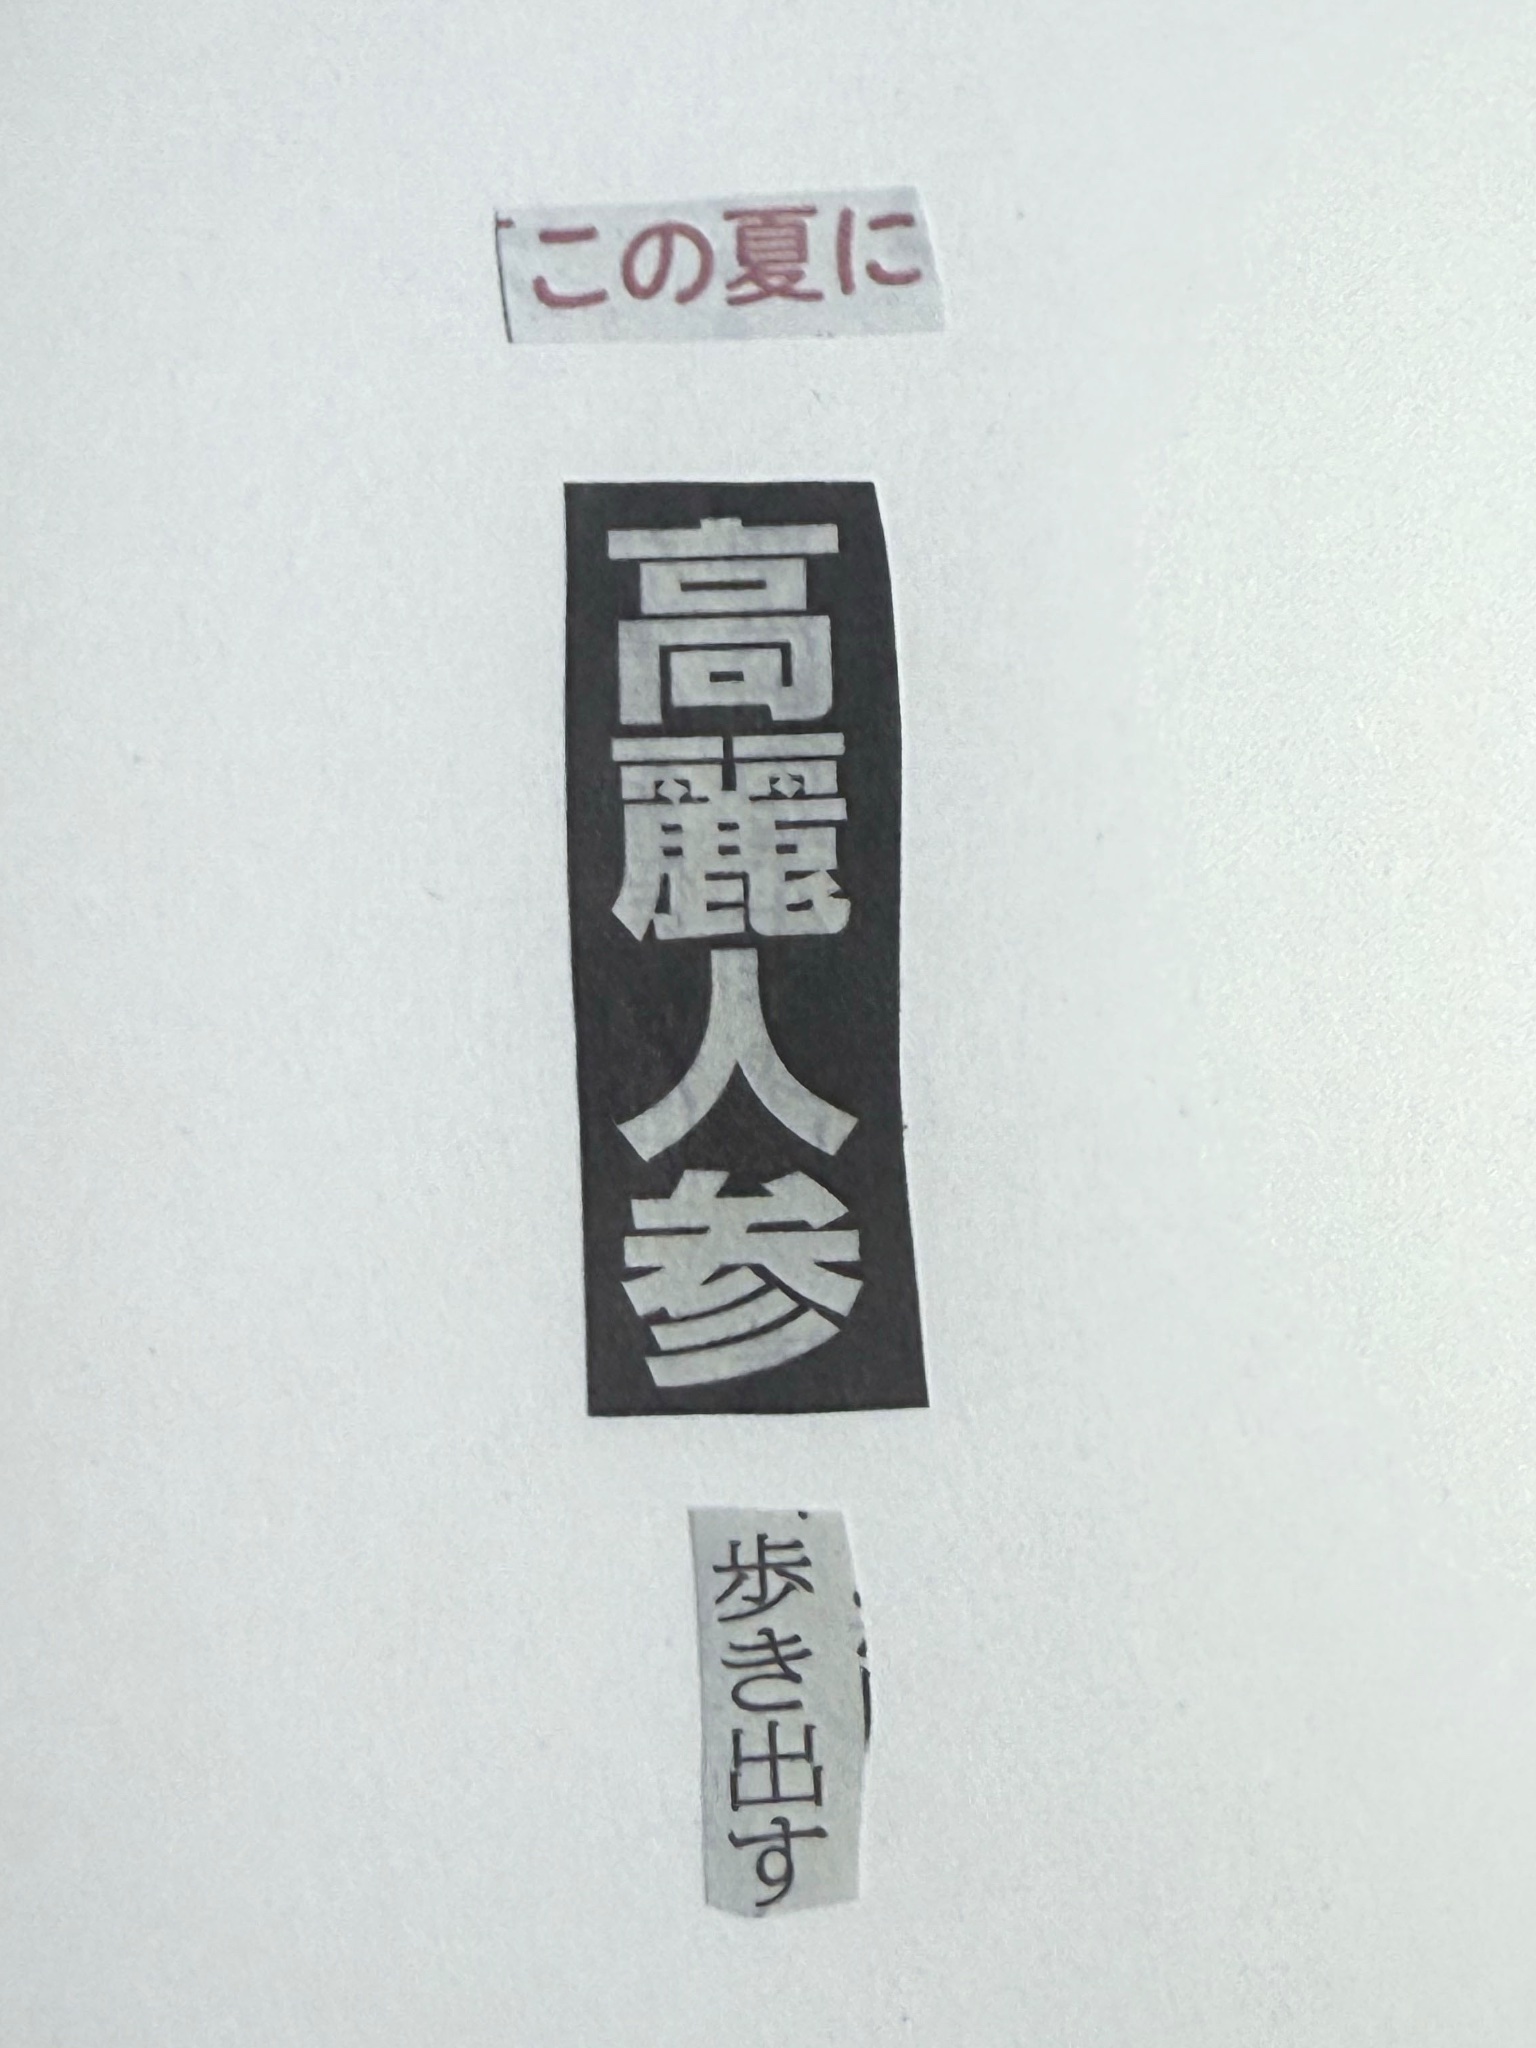 この夏に
高麗人参
歩き出す